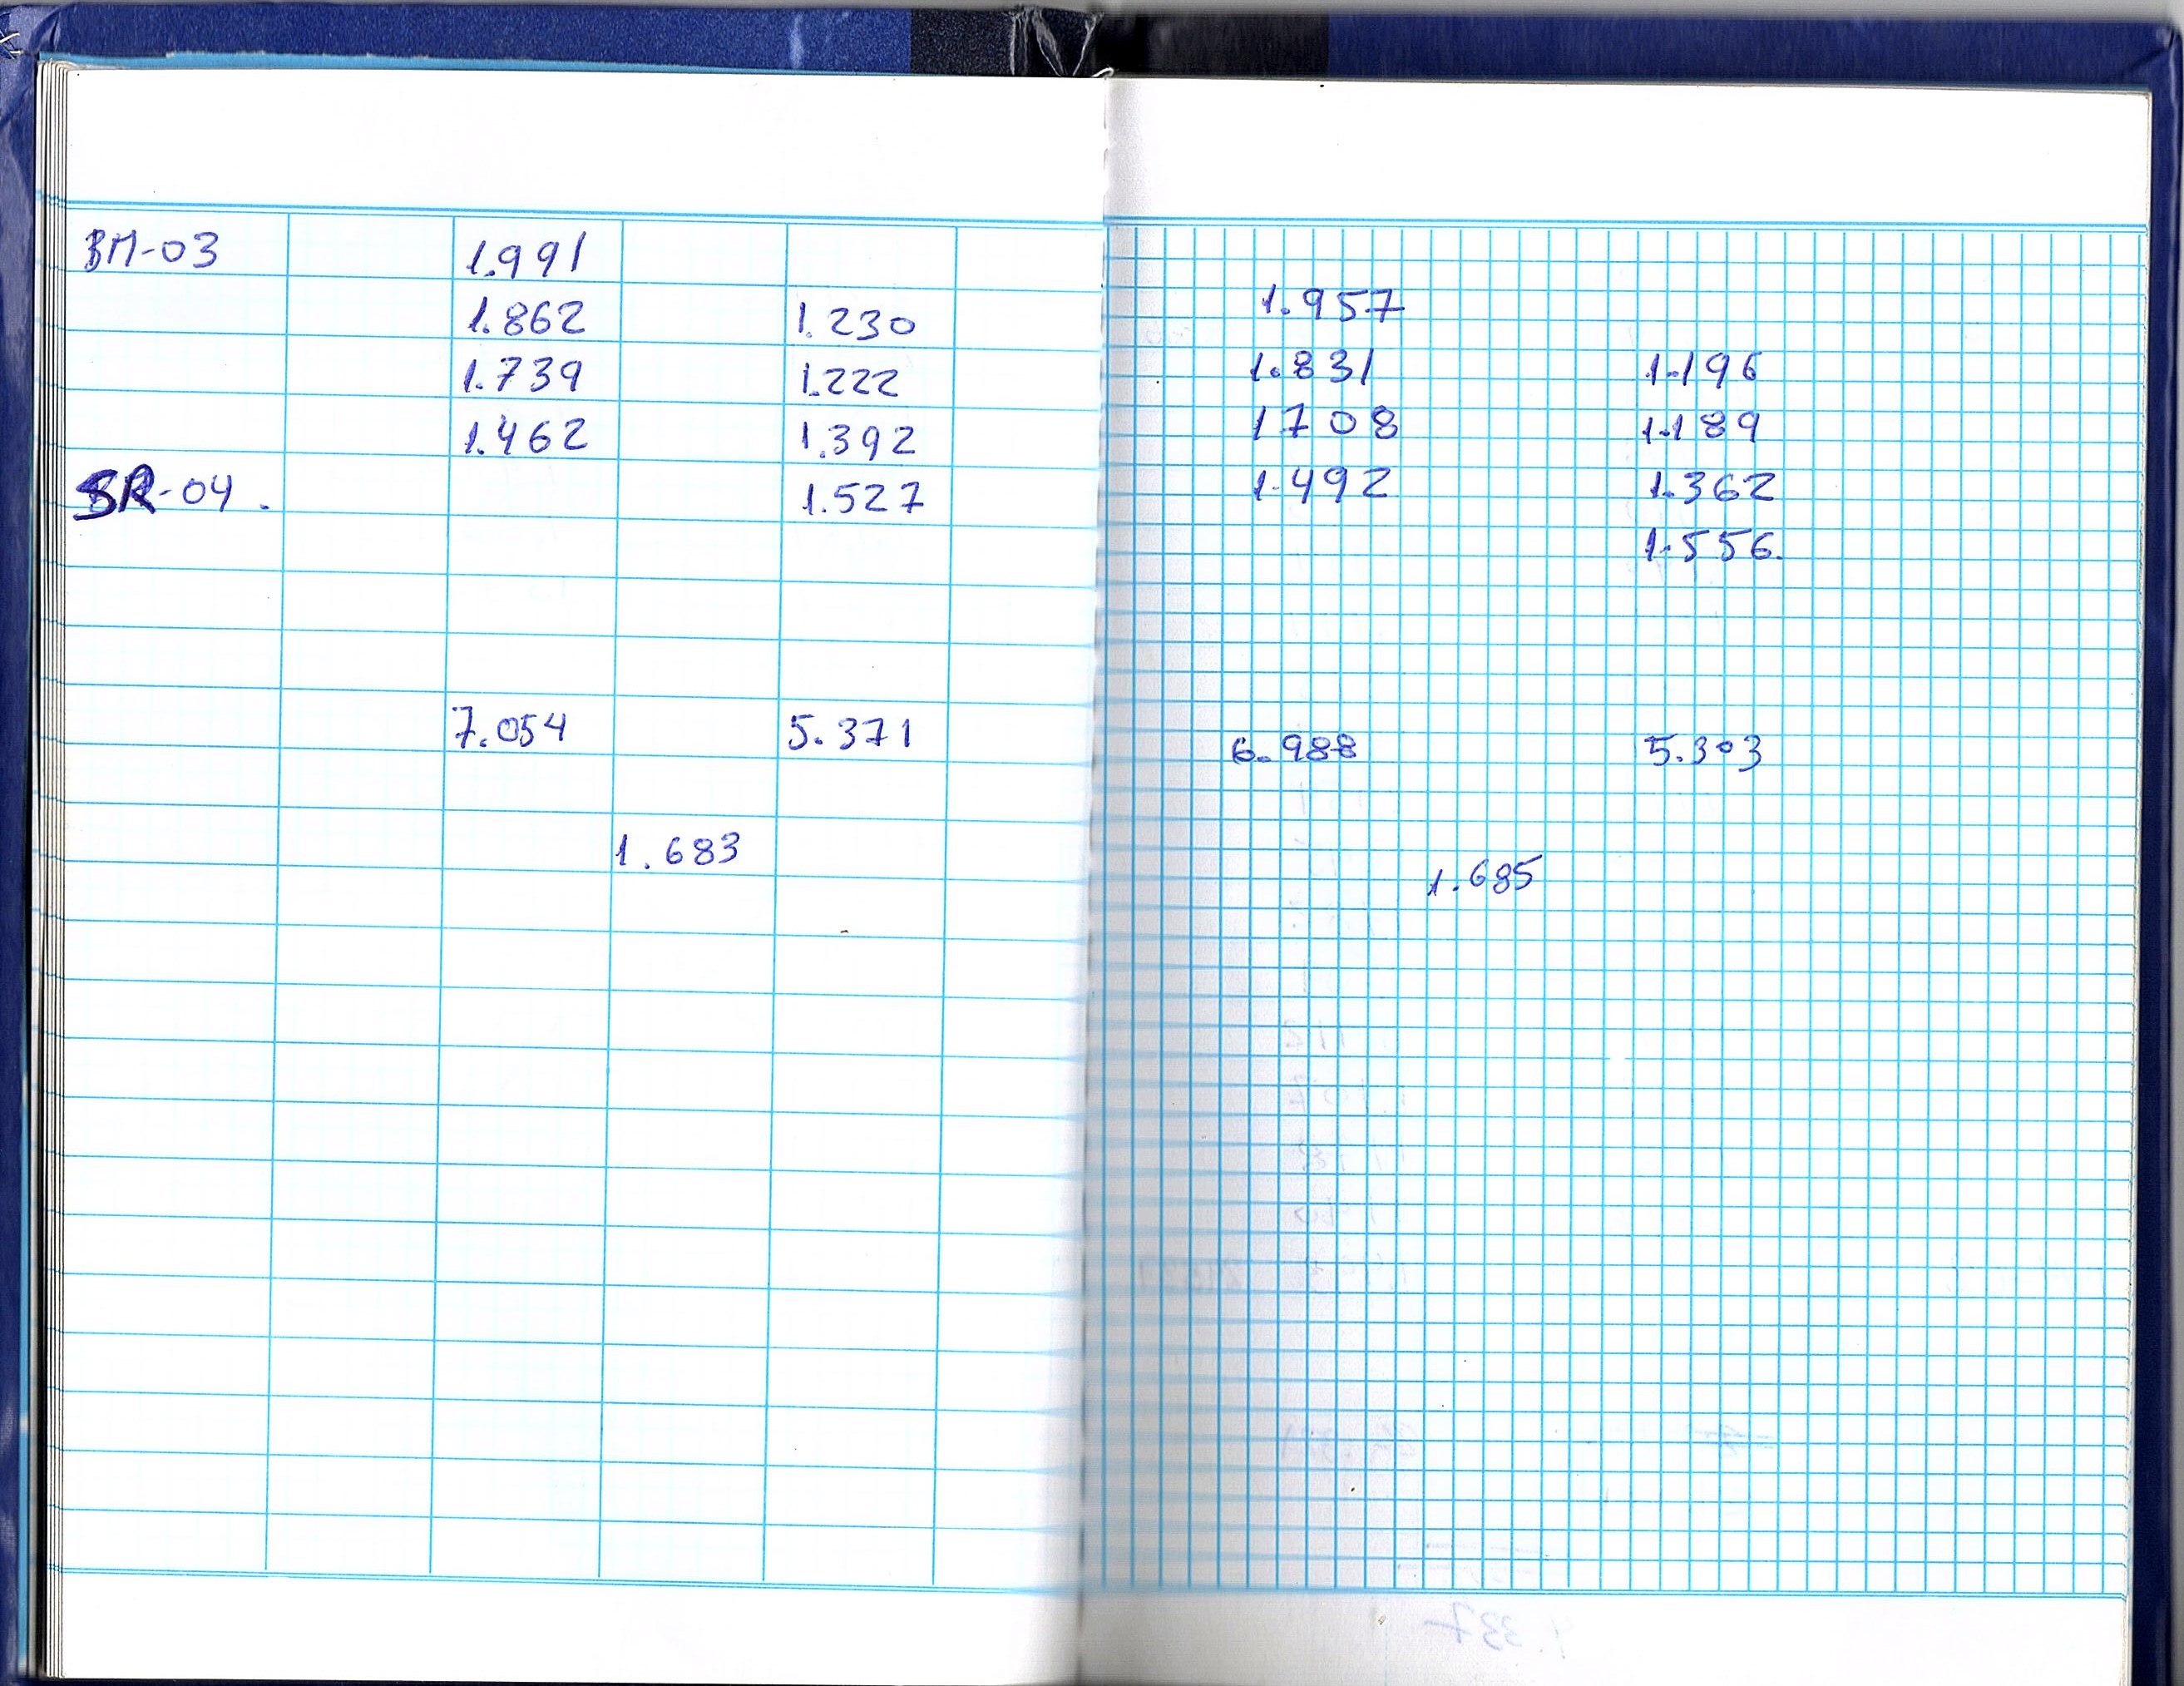 BM-03 1.991
1.862 1.230
1.739 1.222
1.462 1.392
BR-04. 1.527
7.054 5.371
1.683
1.957
1.831 1.196
1708 1.189
1.492 1.362
1.556.
6.988 5.303
1.685